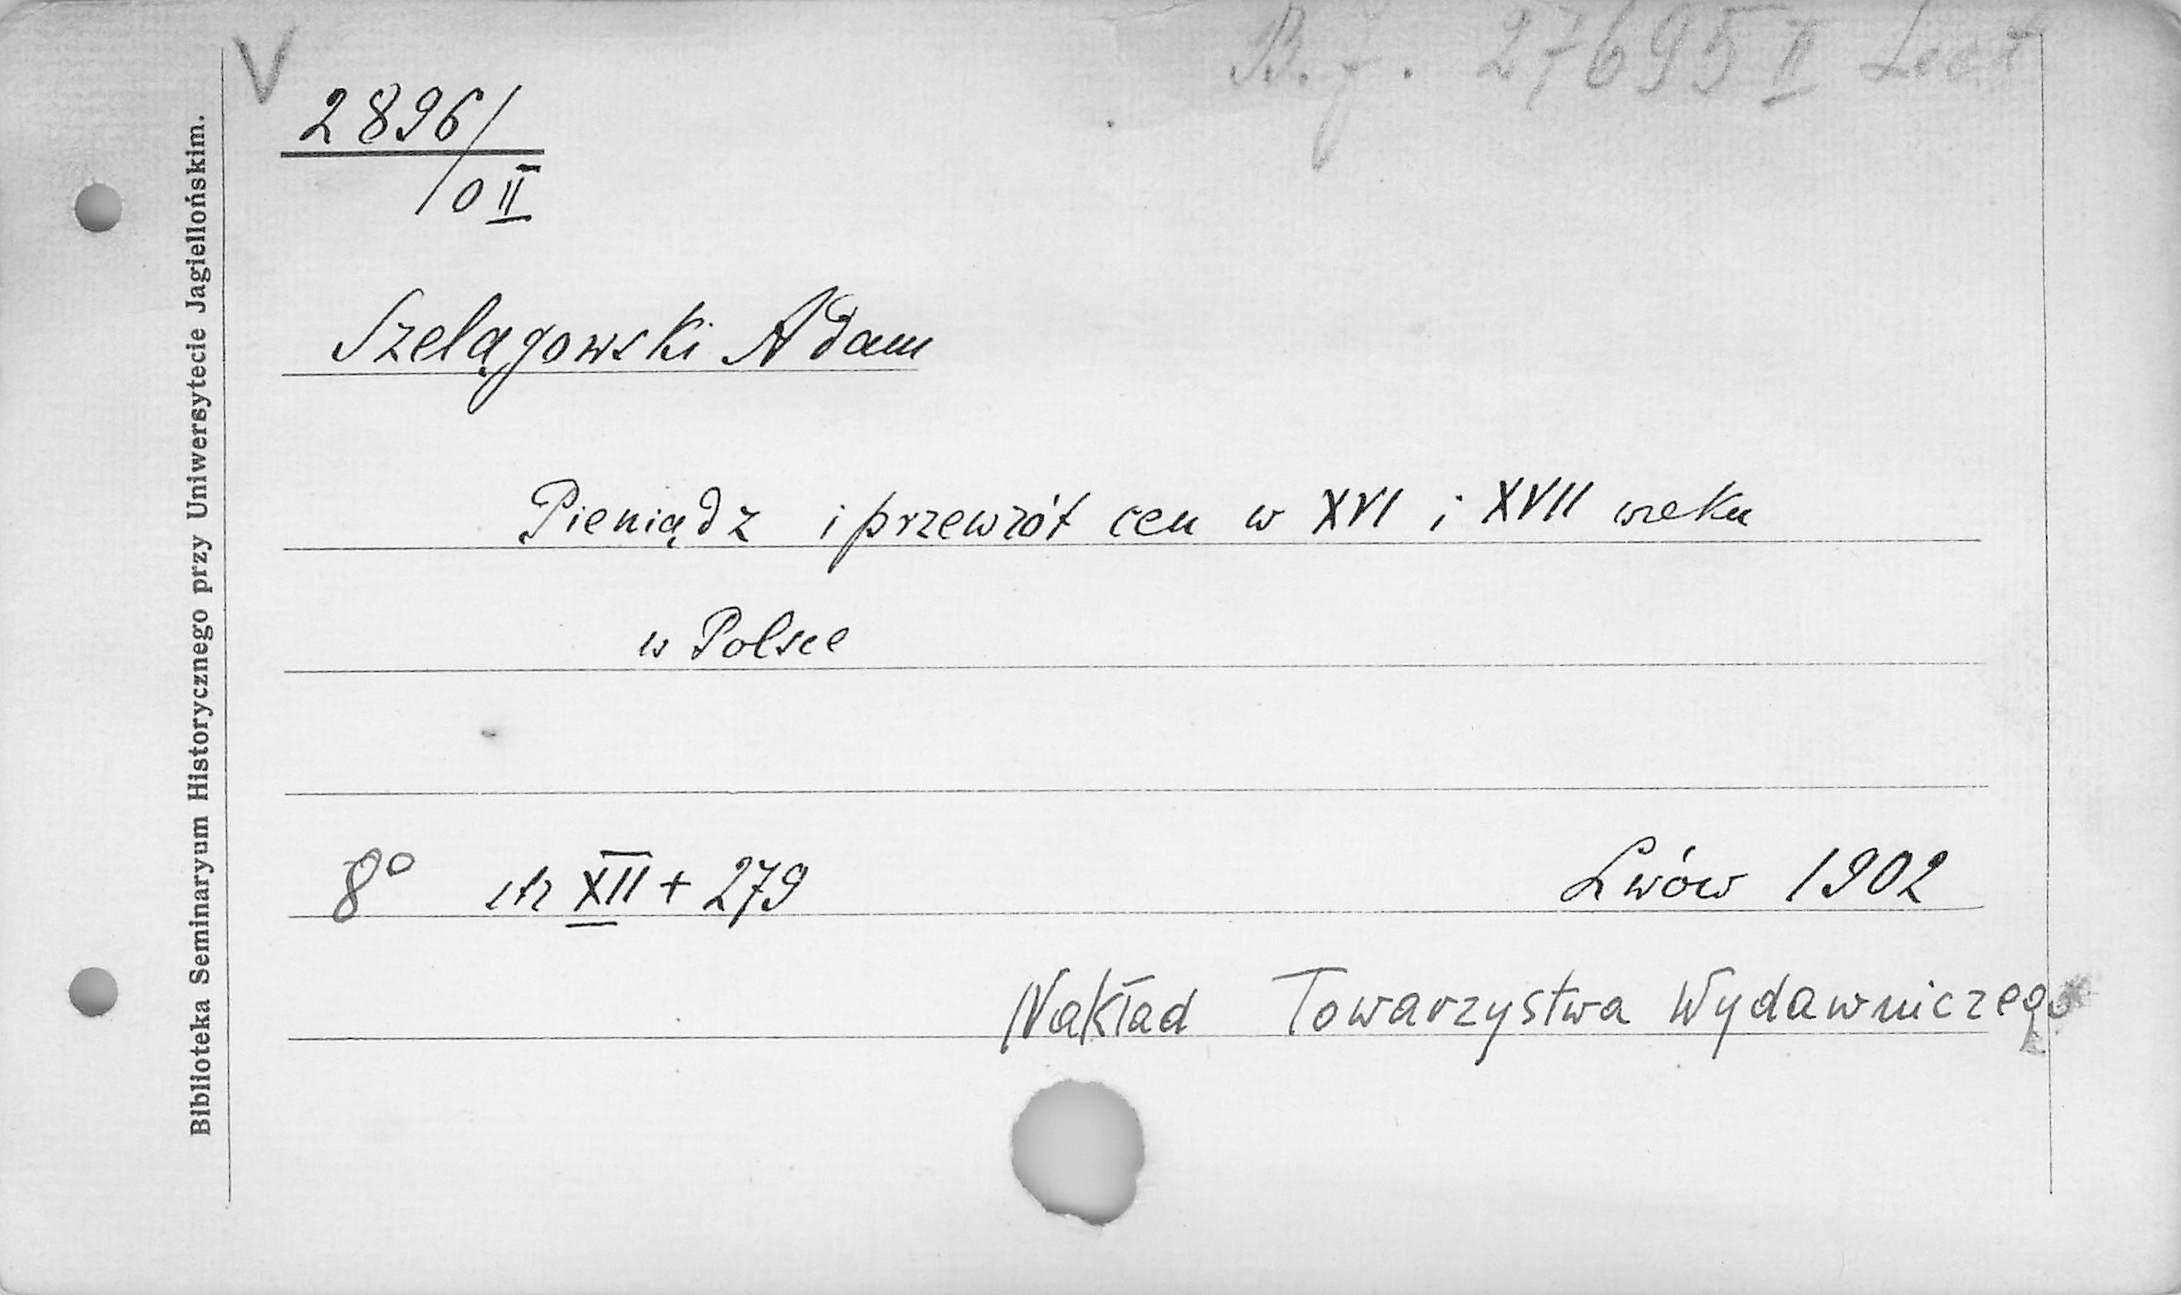 V
B. j. 27695 II Lect
2896/
/0 II
Szelągowski Adam
Pieniądz i przewrót cen w XVI i XVII wieku
w Polsce
8° str XII + 279 Lwów 1902
Nakład Towarzystwa Wydawniczego
Biblioteka Seminaryum Historycznego przy Uniwersytecie Jagiellońskim.